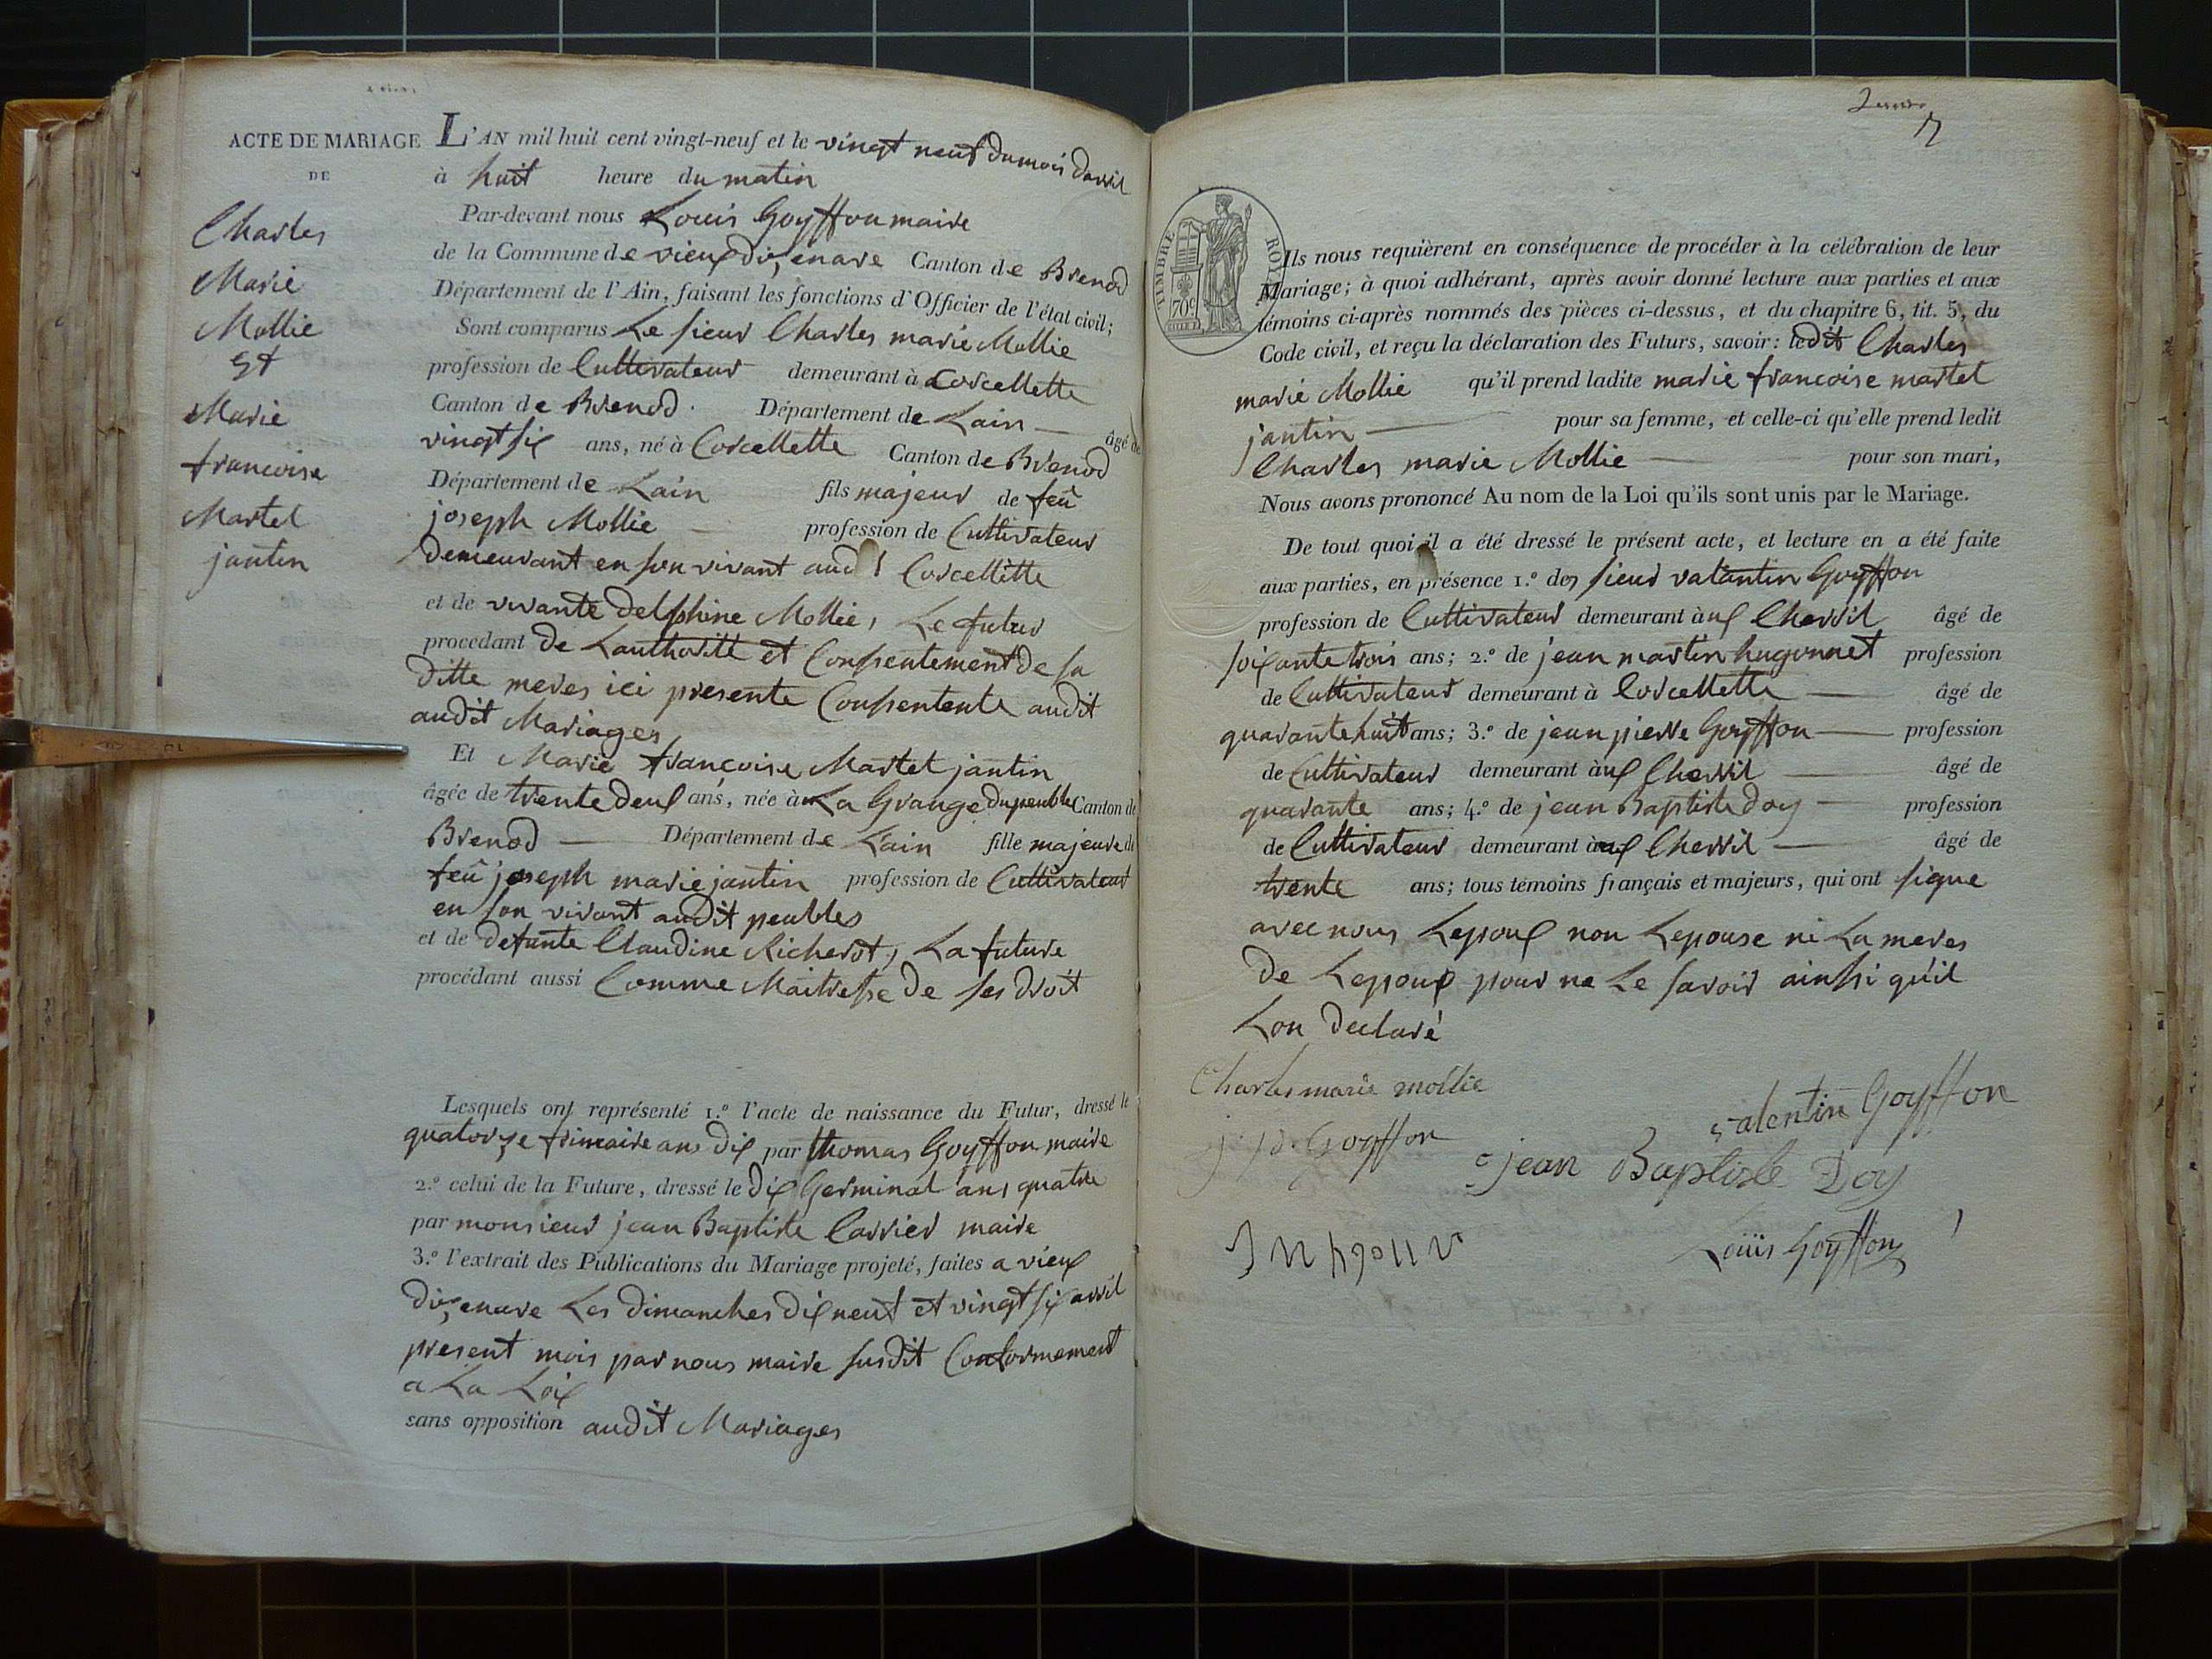 ACTE DE MARIAGE
DE
Charles
Marie
Mollie
Et
Marie
francoise
Martel
jantin
L'AN mil huit cent vingt-neuf et le vingt neuf du mois davril
à huit heure du matin
Par-devant nous Louis Goyffon maire
de la Commune de vieux dizenave Canton de Brenod
Département de l'Ain, faisant les fonctions d'Officier de l'état civil;
Sont comparus Le sieur Charles marie Mollie
profession de Cultivateur demeurant à Corcellette
Canton de Brenod. Département de Lain — âgé de
vingt six ans, né à Corcellette Canton de Brenod
Département de Lain fils majeur de feû
joseph Mollie — profession de Cultivateur
demeurant en son vivant aud t Corcellette
et de vivante delphine Mollie, Le futur
procédant de Lauthorité et Consentement de sa
ditte meres ici presente Consentente audit
audit Mariages
Et Marie françoise Martel jantin
âgée de trente deux ans, née à La Grange du peuble Canton de
Brenod — Département de Lain fille majeure de
feû joseph marie jantin profession de Cultivateur
en son vivant audit peubles
et de defunte Claudine Richerot, La future
procédant aussi Comme Maitresse de ses droit
Lesquels ont représenté 1.º l'acte de naissance du Futur, dressé le
quatorze frimaire ans dix par thomas Goyffon maire
2.º celui de la Future, dressé le dix Germinal ans quatre
par monsieur jean Baptiste Carrier maire
3.º l'extrait des Publications du Mariage projeté, faites a vieux
dizenave Les dimanches dix neuf et vingt six avril
present mois par nous maire susdit Conformement
a La Loix
sans opposition audit Mariages
17
TIMBRE ROYAL
70c
Ils nous requièrent en conséquence de procéder à la célébration de leur
Mariage; à quoi adhérant, après avoir donné lecture aux parties et aux
témoins ci-après nommés des pièces ci-dessus, et du chapitre 6, tit. 5, du
Code civil, et reçu la déclaration des Futurs, savoir: ledit Charles
marie Mollie qu'il prend ladite marie francoise martel
jantin — pour sa femme, et celle-ci qu'elle prend ledit
Charles marie Mollie — pour son mari,
Nous avons prononcé Au nom de la Loi qu'ils sont unis par le Mariage.
De tout quoi il a été dressé le présent acte, et lecture en a été faite
aux parties, en présence 1.º des sieur valantin Goyffon
profession de Cultivateur demeurant à aux Chevril âgé de
soixante trois ans; 2.º de jean martin hugonnet profession
de Cultivateur demeurant à Corcellette — âgé de
quarante huit ans; 3.º de jean pierre Goyffon — profession
de Cultivateur demeurant à aux Chevril — âgé de
quarante ans; 4.º de jean Baptiste doy — profession
de Cultivateur demeurant à aux Chevril — âgé de
trente ans; tous témoins français et majeurs, qui ont signe
avec nous Lepoux non Lepouse ni La meres
de Lepoux pour ne Le savoir ainssi qu'il
Lon declaré
Charles marie mollie
valentin Goyffon
j. p. Goyffon
jean Baptiste Doy
Loüis Goyffon